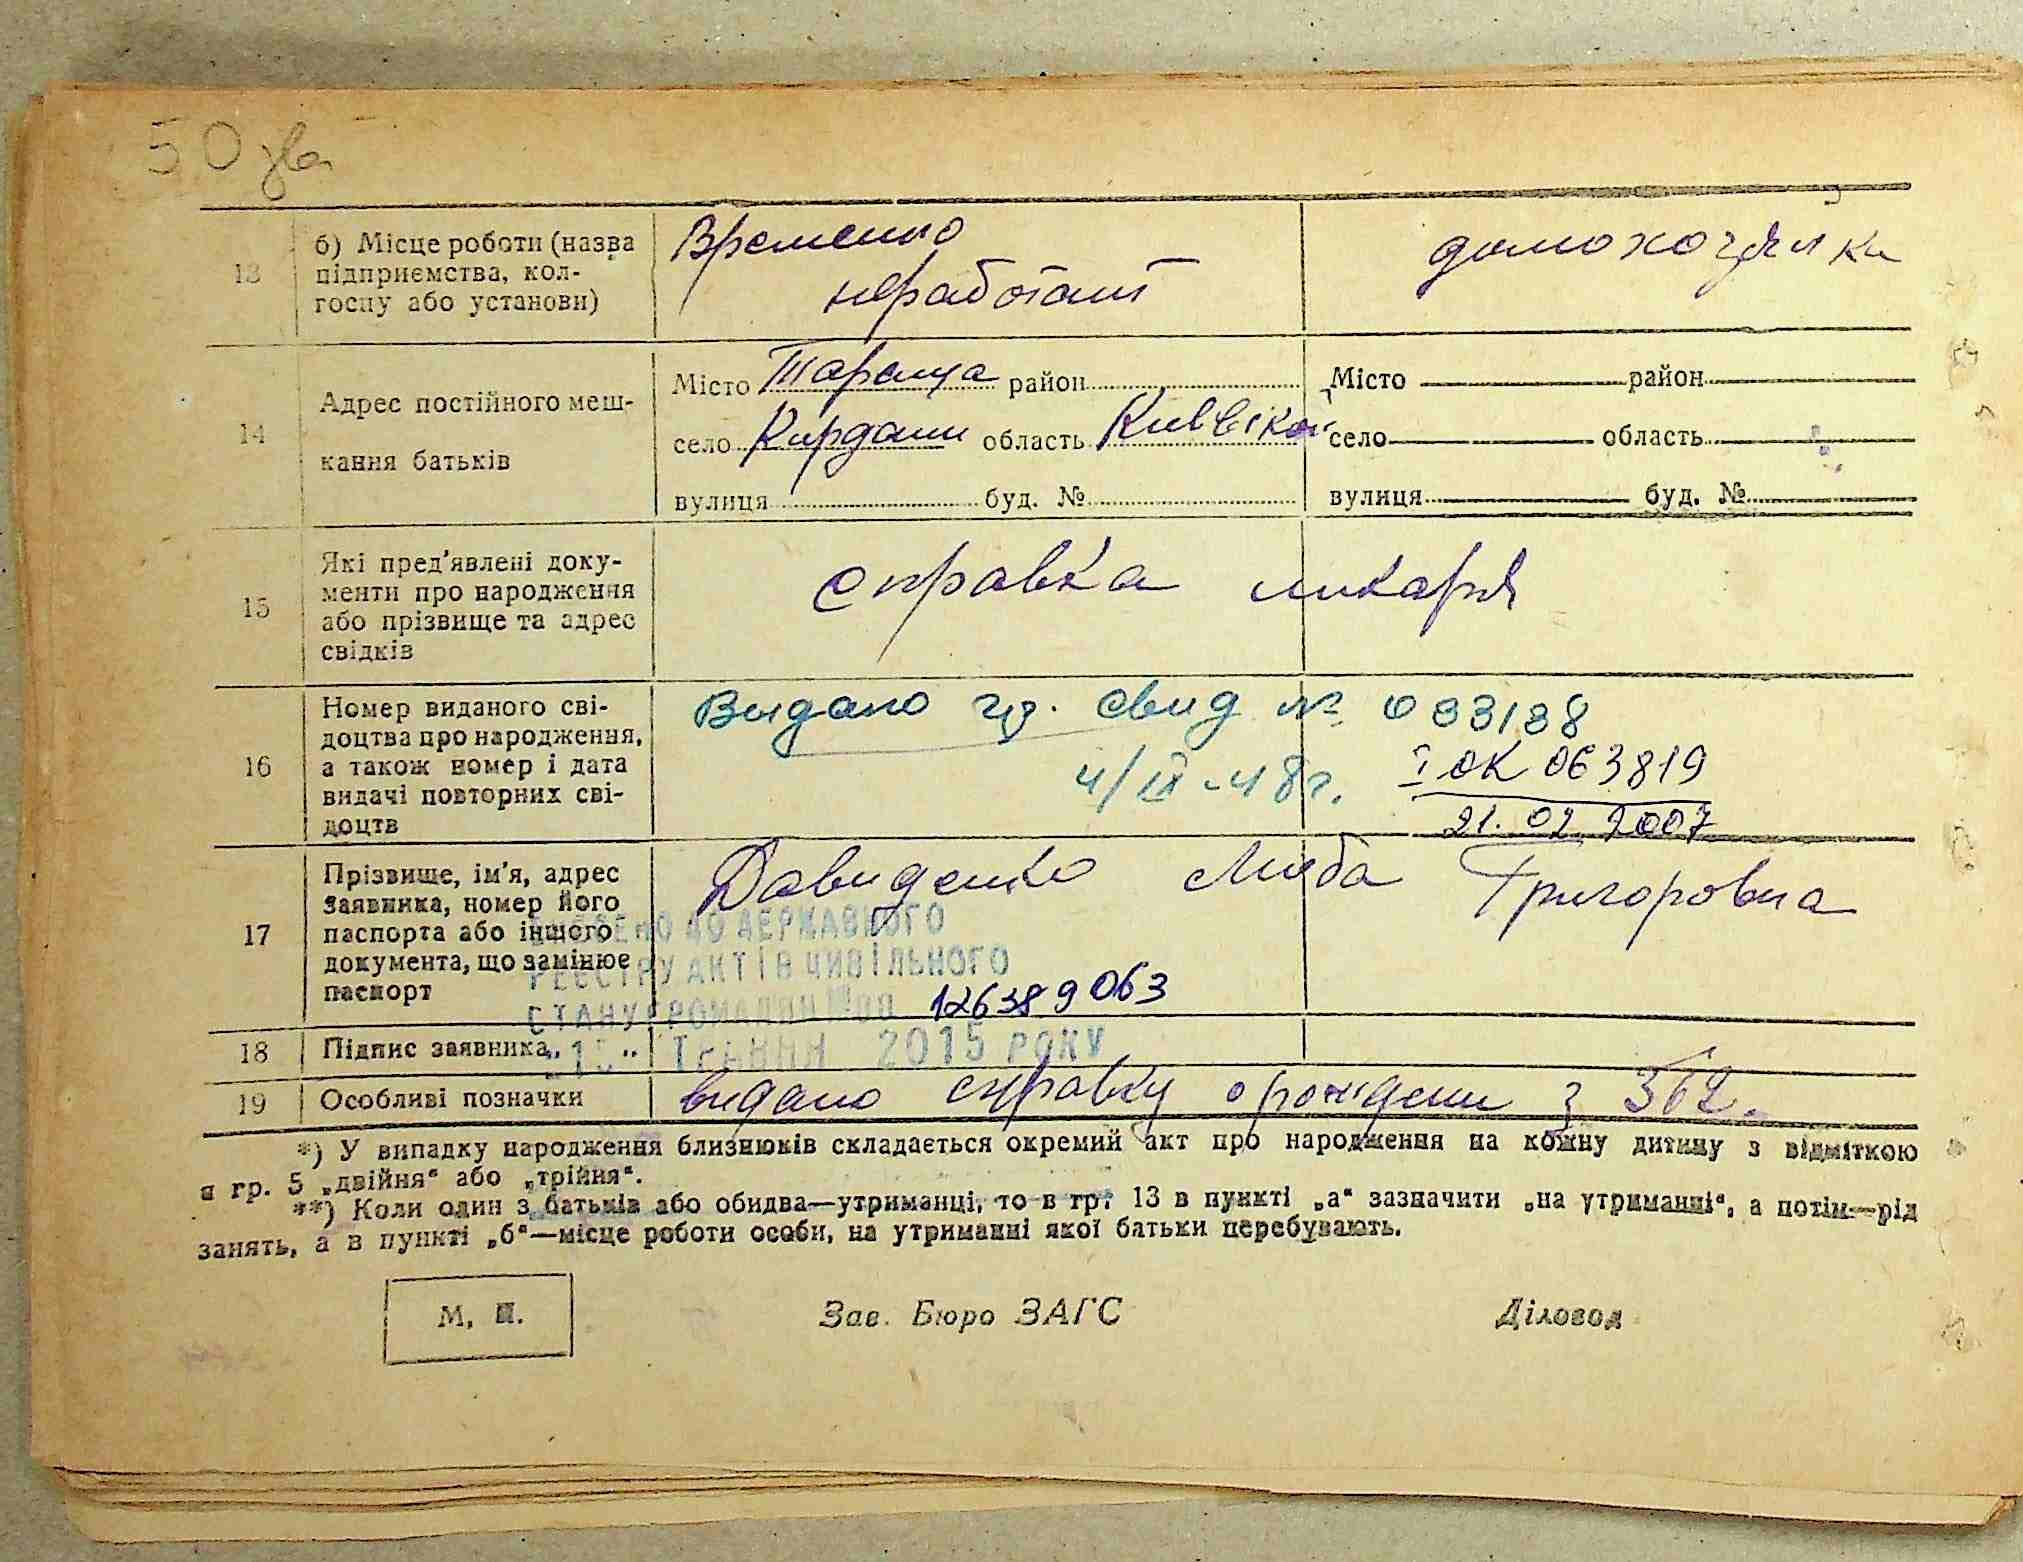 50 зв
13 б) Місце роботи (назва підприємства, колгоспу або установи)
Временно
неработает
домохозяйка
14 Адрес постійного мешкання батьків
Місто Тараща район
село Кирдани область Київської
вулиця буд. №
Місто район
село область
вулиця буд. №
15 Які пред'явлені документи про народження або прізвище та адрес свідків
справка ликаря
16 Номер виданого свідоцтва про народження, а також номер і дата видачі повторних свідоцтв
Видано гр. свид № 033188
4/IX-48г.
І ОК 063819
21.02.2007
17 Прізвище, ім'я, адрес заявника, номер його паспорта або іншого документа, що замінює паспорт
Давиденко Люба Григоровна
ВНЕСЕНО ДО ДЕРЖАВНОГО
РЕЄСТРУ АКТІВ ЦИВІЛЬНОГО
СТАНУ ГРОМАДЯН 126389063
ТРАВНЯ 2015 РОКУ
18 Підпис заявника
19 Особливі позначки
видано справку о рождени з 362.
*) У випадку народження близнюків складається окремий акт про народження на кожну дитину з відміткою
в гр. 5 „двійня“ або „трійня“.
**) Коли один з батьків або обидва—утриманці, то в гр. 13 в пункті „а“ зазначити „на утриманні“, а потім—рід
занять, а в пункті „б“—місце роботи особи, на утриманні якої батьки перебувають.
М. П.
Зав. Бюро ЗАГС
Діловод